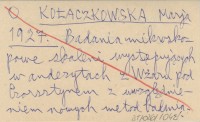 O KOŁACZKOWSKA Marja
1927. Badania mikrosko-
powe skaleni występujących
w andezytach z Wżaru pod
Czorsztynem z uwzględnie-
niem nowych metod badaw-